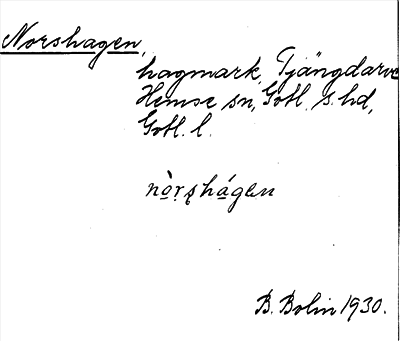 Norshagen,
hagmark, Tjängdarve
Hemse sn, Gotl. s. hd,
Gotl. l.
nò̱rṣhá̱gen
B. Bolin 1930.